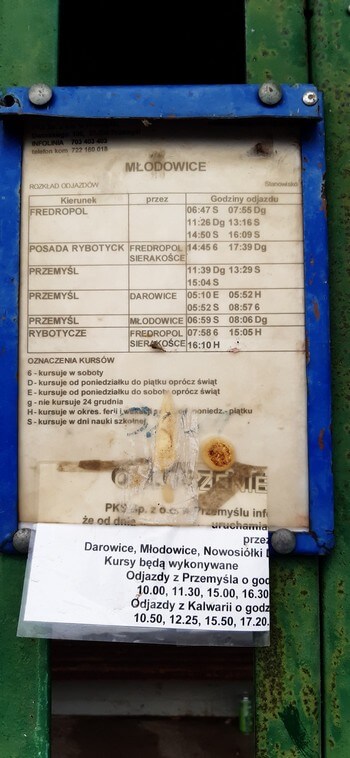 INFOLINIA 703 403 403
telefos kom 722 180 018
MŁODOWICE
ROZKŁAD ODJAZDÓW
Kierunek przez Godziny odjazdu
FREDROPOL 06:47 S 07:55 Dg
11:26 Dg 13:16 S
14:50 S 16:09 S
POSADA RYBOTYCK FREDROPOL 14:45 6 17:39 Dg
SIERAKOŚCE
PRZEMYŚL 11:39 Dg 13:29 S
15:04 S
PRZEMYŚL DAROWICE 05:10 E 05:52 H
05:52 S 08:57 6
PRZEMYŚL MŁODOWICE 06:59 S 08:06 Dg
RYBOTYCZE FREDROPOL 07:58 6 15:05 H
SIERAKOŚCE 16:10 H
OZNACZENIA KURSÓW
6 - kursuje w soboty
D - kursuje od poniedziałku do piątku oprócz świąt
E - kursuje od poniedziałku do soboty oprócz świąt
g - nie kursuje 24 grudnia
H - kursuje w okres. ferii i poniedz.- piątku
S - kursuje w dni nauki szkolnej
PKS Sp. z o.o. Przemyślu inf
że od dnia uruchamia
prze
Darowice, Młodowice, Nowosiółki
Kursy będą wykonywane
Odjazdy z Przemyśla o god
10.00, 11.30, 15.00, 16.30
Odjazdy z Kalwarii o godz
10.50, 12.25, 15.50, 17.20.